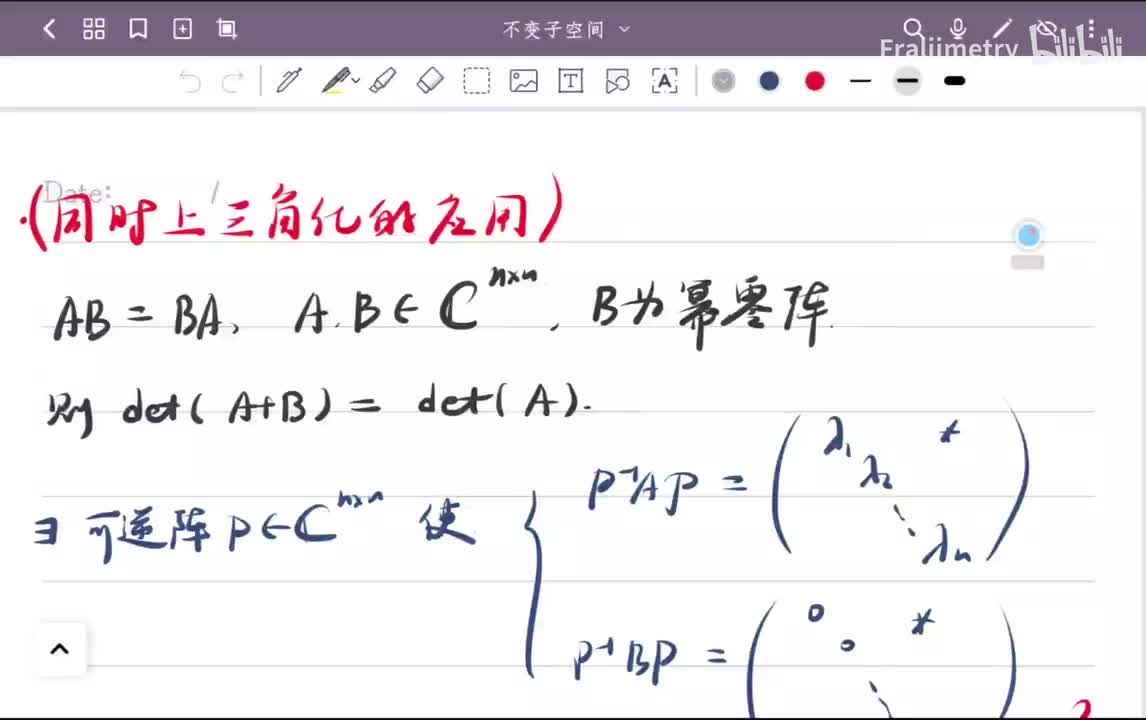 不变子空间
Fraljimetry bilibili
Date: /
(同时上三角化的应用)
AB = BA, A.B ∈ ℂⁿˣⁿ, B为幂零阵.
则 det(A+B) = det(A).
∃ 可逆阵 P∈ℂⁿˣⁿ 使
P⁻¹AP = ( λ₁ *
λ₂
⋱
λₙ )
P⁻¹BP = ( 0 *
0
⋱